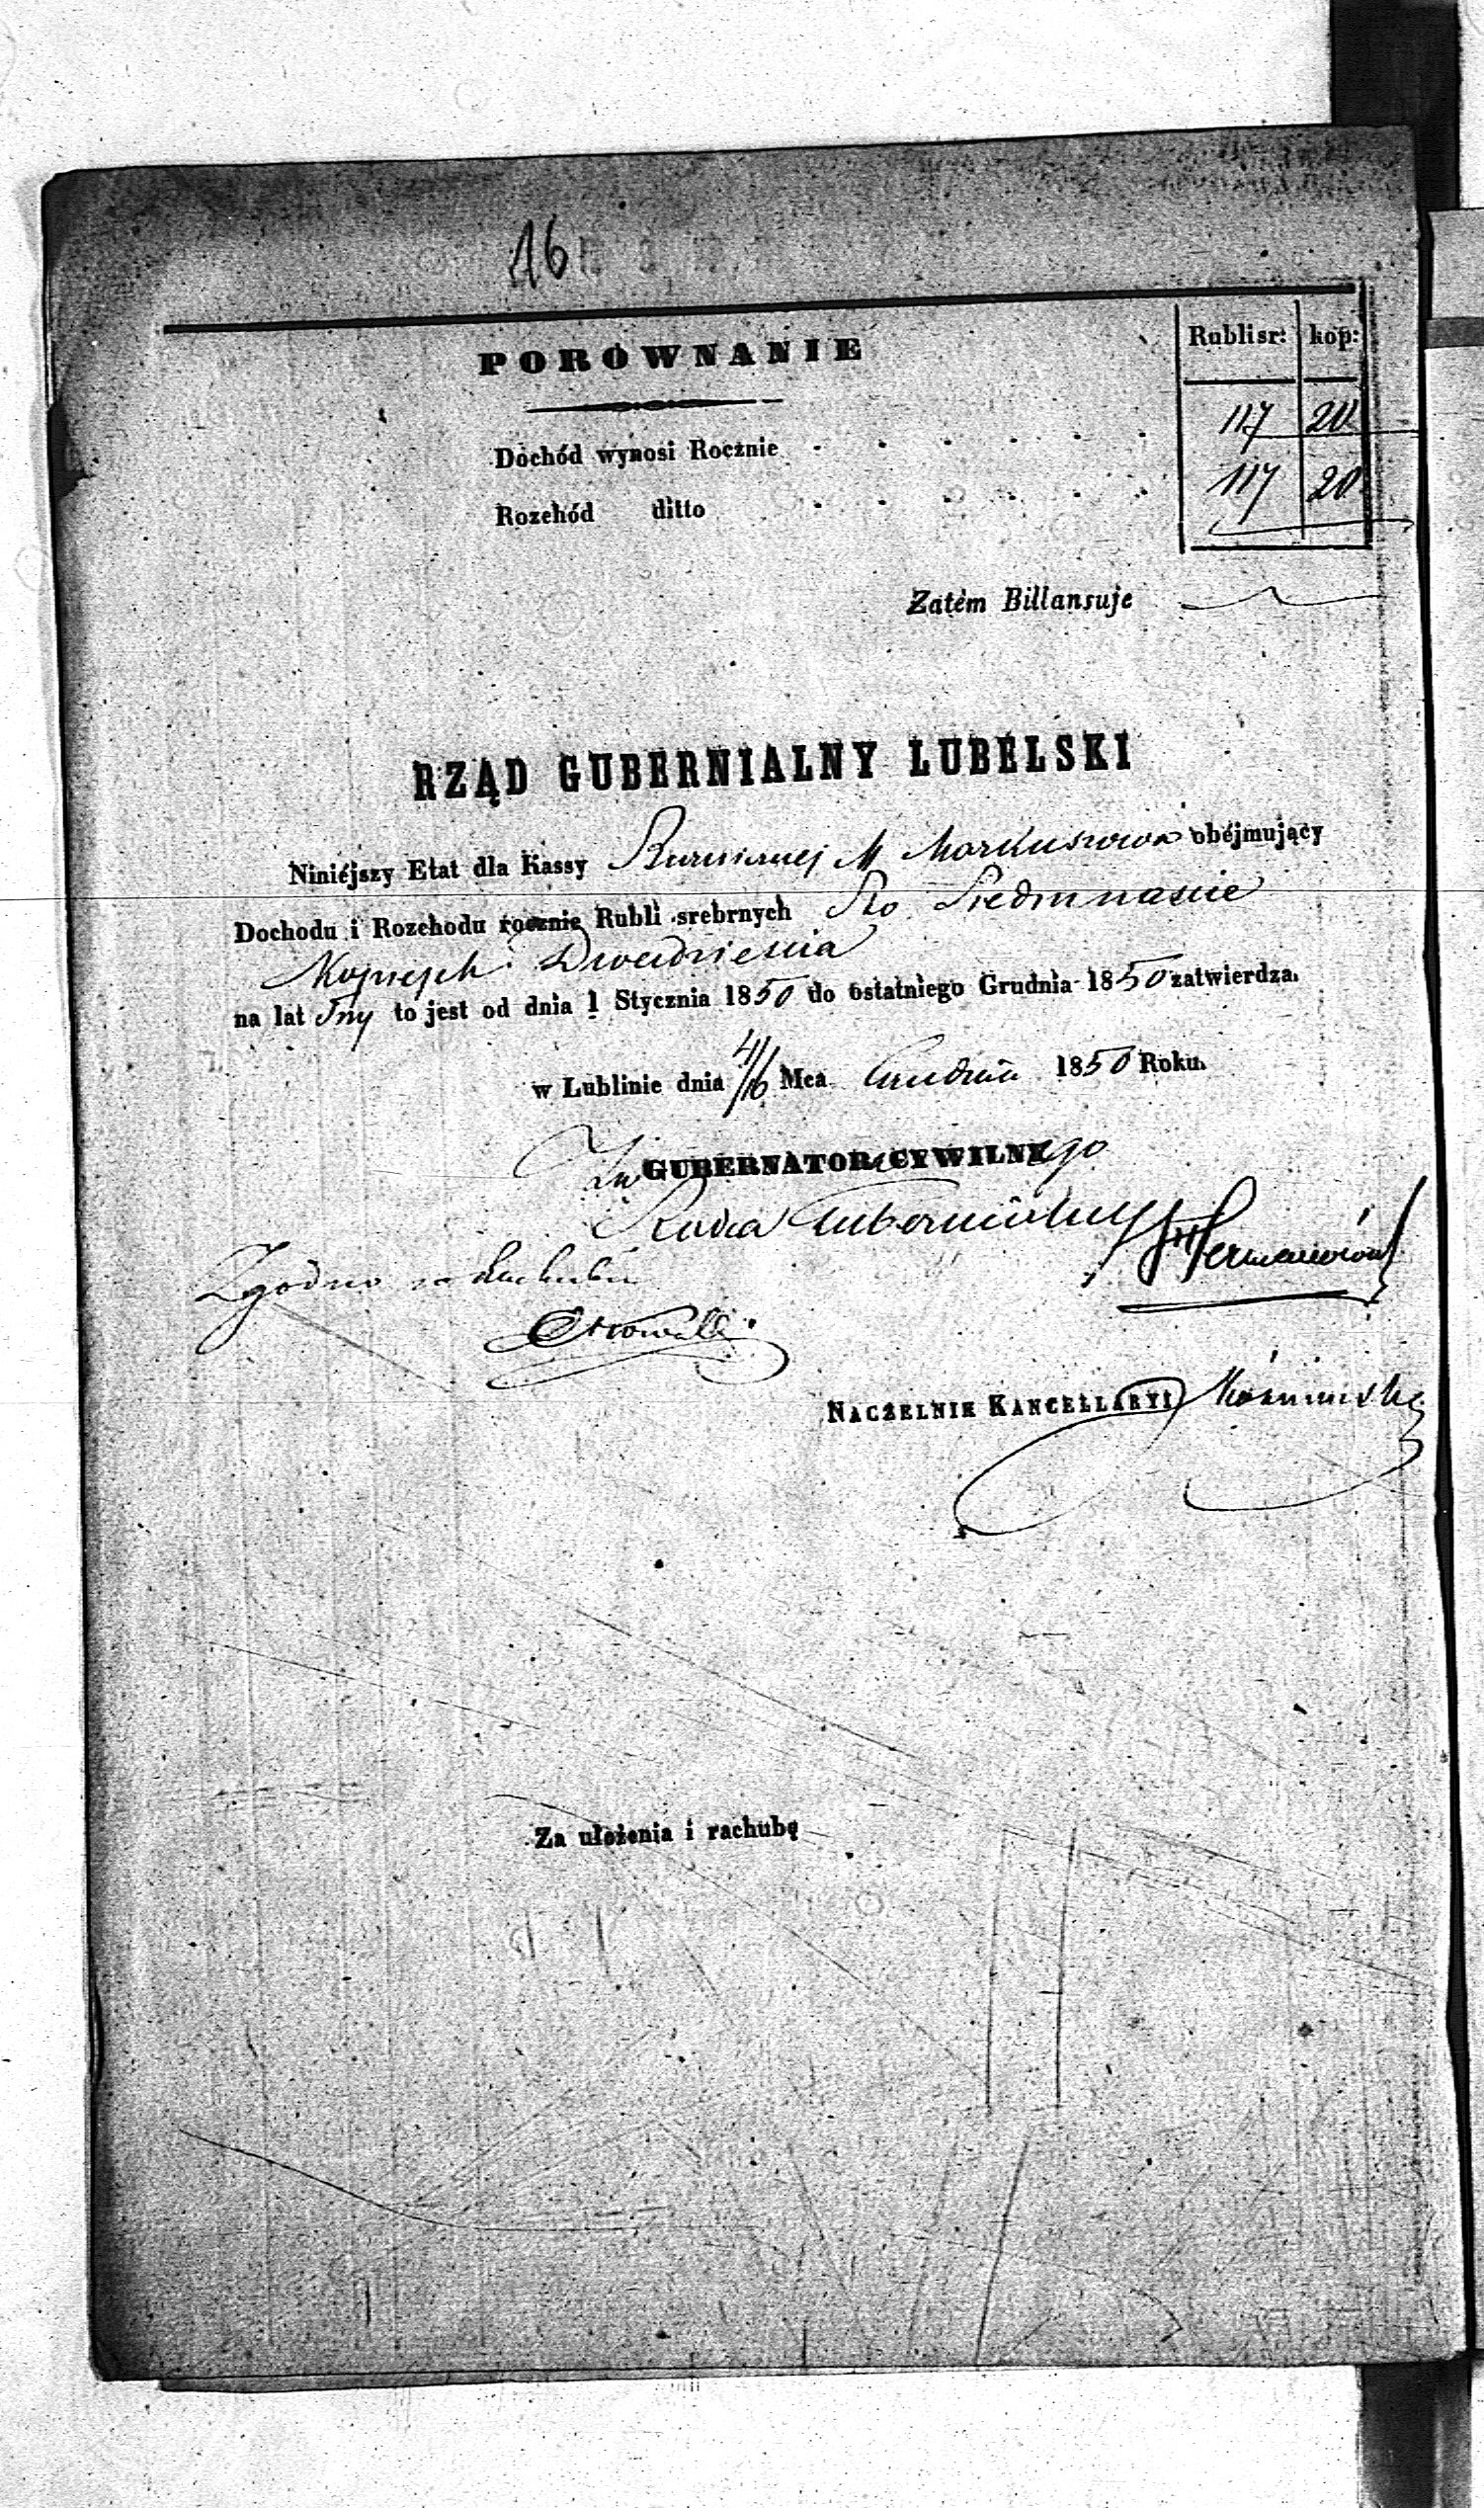 16
PORÓWNANIE
Rubli sr: kop:
Dochód wynosi Rocznie 117 20
Rozchód ditto 117 20
Zatém Billansuje
RZĄD GUBERNIALNY LUBELSKI
Niniéjszy Etat dla Kassy M Markuszowa obéjmujący
Dochodu i Rozchodu rocznie Rubli srebrnych Sto Siedmnaście
Kopiejek Dwadzieścia
na lat to jest od dnia 1 Stycznia 1850 do ostatniego Grudnia 1850 zatwierdza.
w Lublinie dnia 4/16 Mca Grudnia 1850 Roku.
GUBERNATORA CYWILNEgo
Radca Gubernialny
Zgodno z Rachubą
NACZELNIK KANCELLARYI
Za ułożenia i rachubę